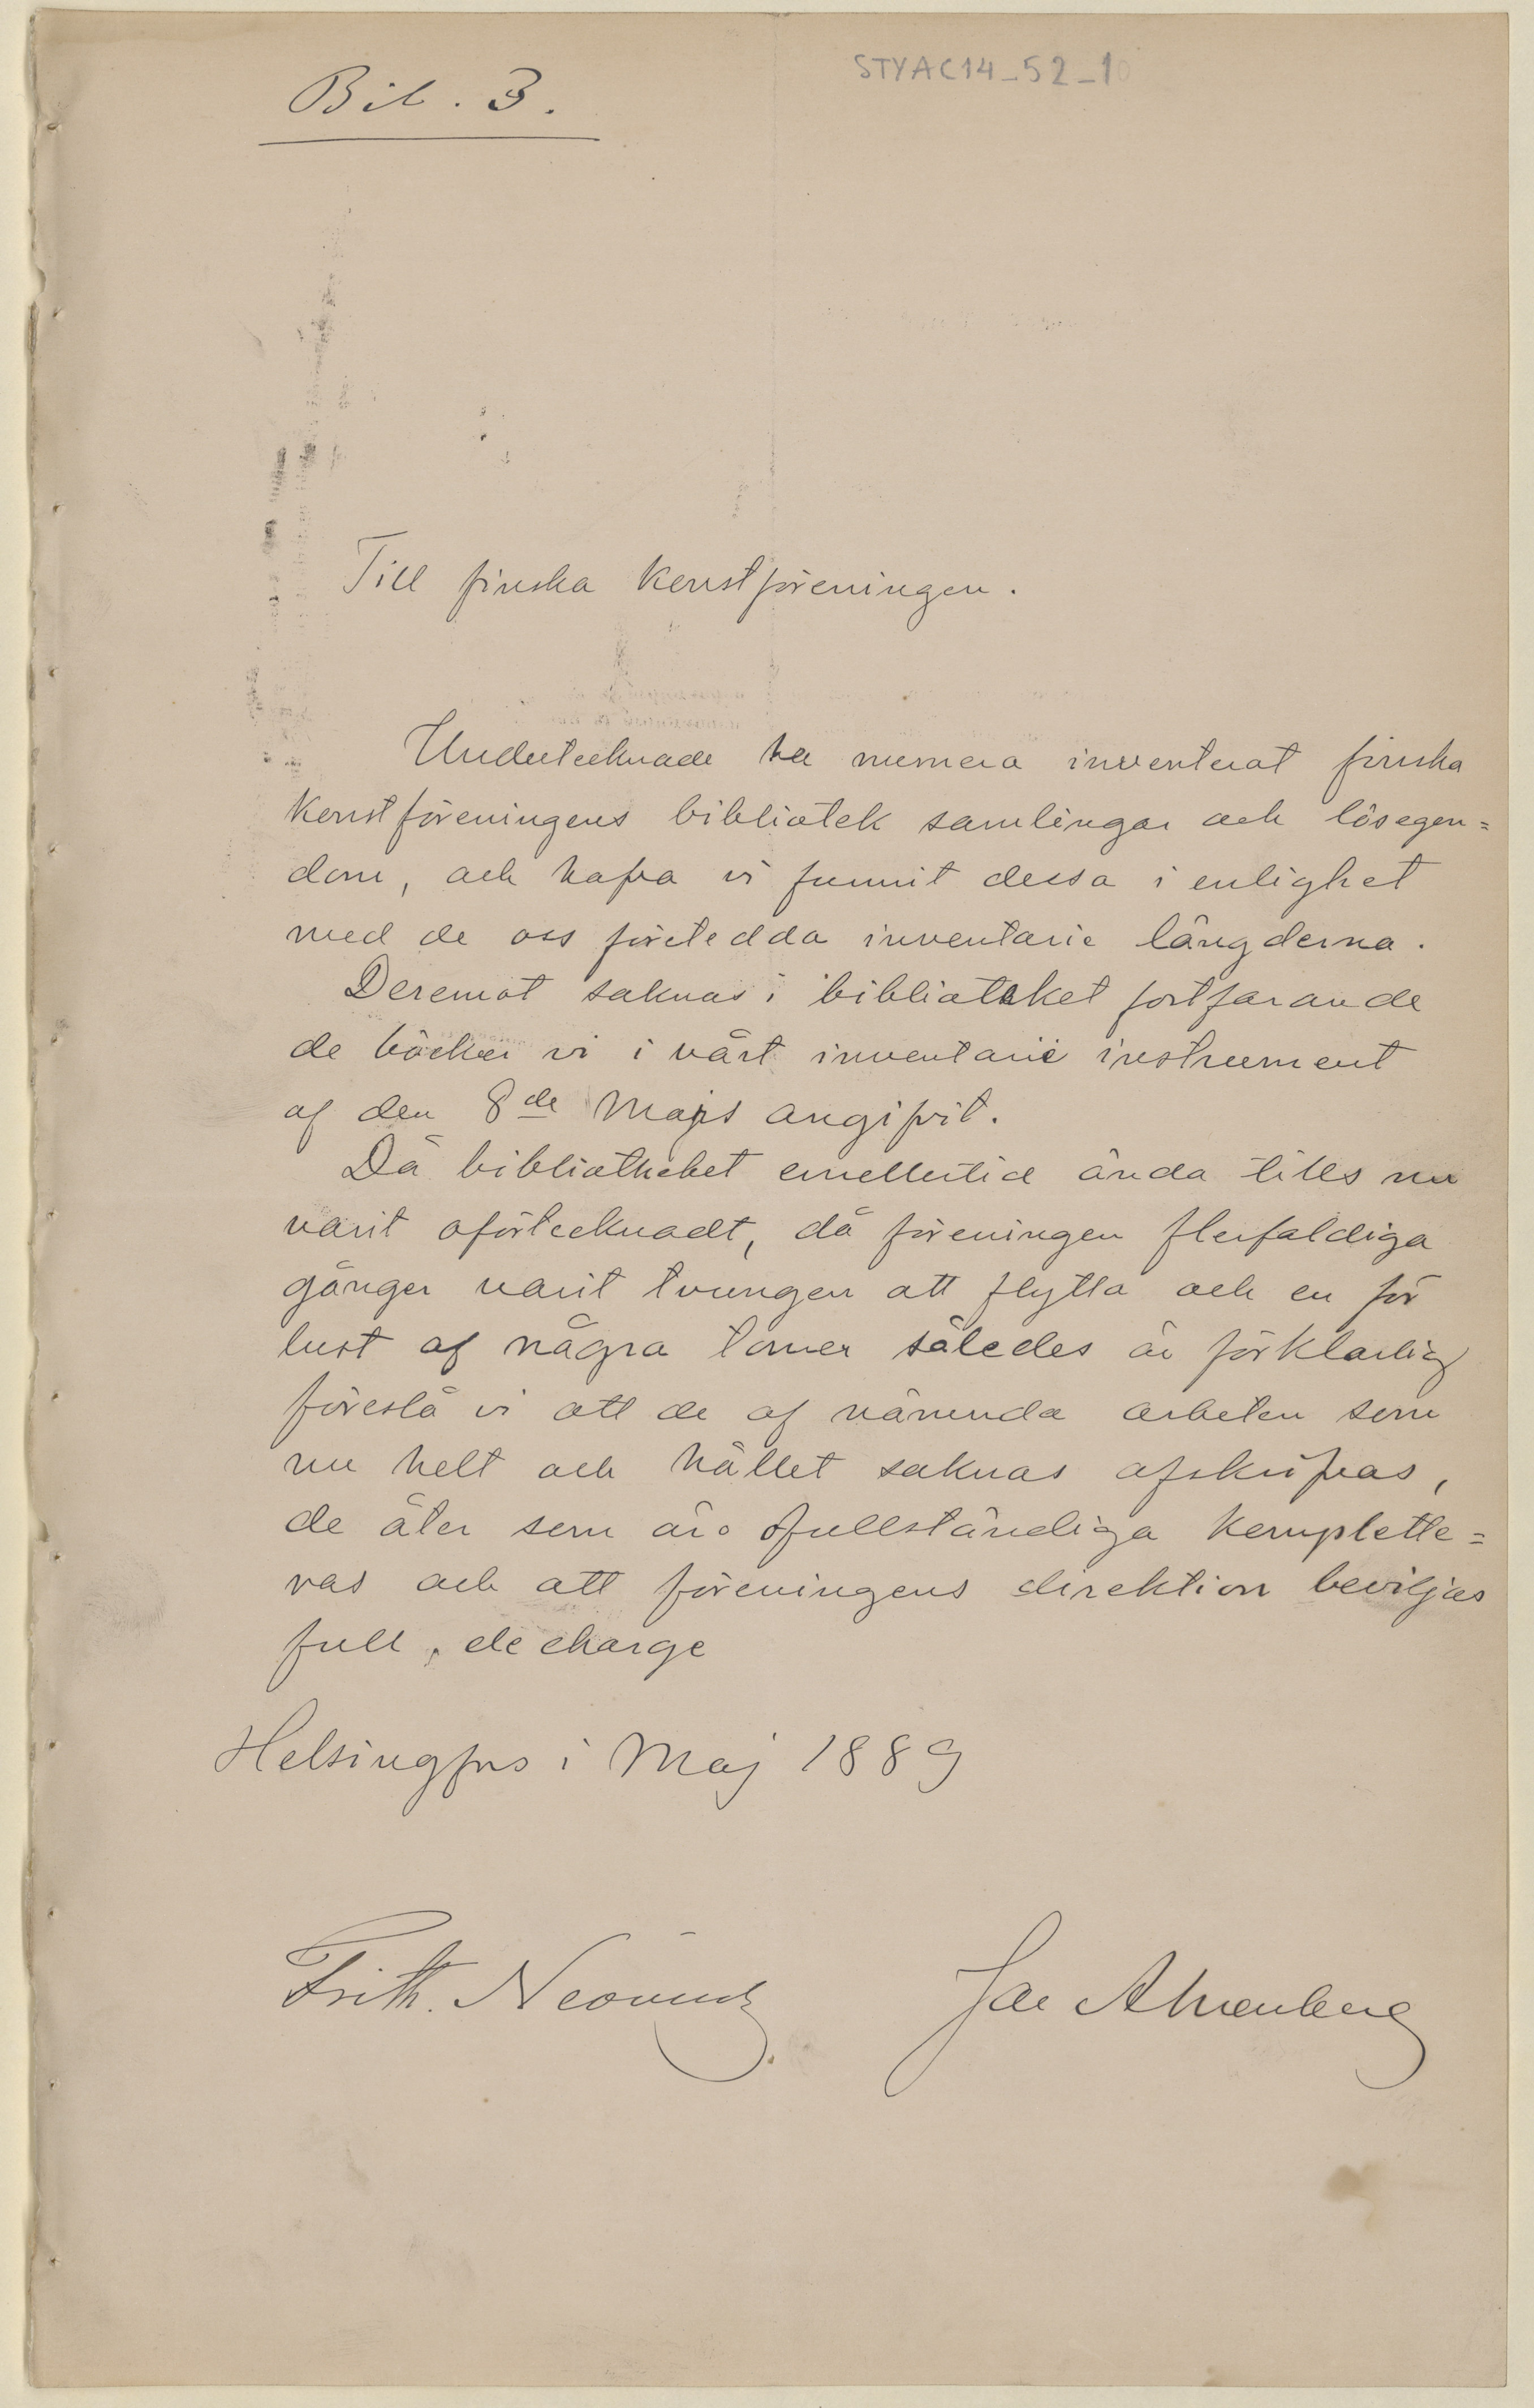 Bil. 3.
STYAC14_52_10
Till finska konstföreningen.
Undertecknade ha numera inventerat finska
konstföreningens bibliotek samlingar och lösegen=
dom, och hafva vi funnit dessa i enlighet
med de oss företedda inventarie längderna.
Deremot saknas i biblioteket fortfarande
de böcker vi i vårt inventarie instrument
af den 8de Majs angifvit.
Då bibliotheket emellertid ända tills nu
varit oförtecknadt, då föreningen flerfaldiga
gånger varit tvungen att flytta och en för
lust af några tomer således är förklarlig
föreslå vi att de af nämnda arbeten som
nu helt och hållet saknas afskrifvas,
de åter som äro ofullständiga komplette=
ras och att föreningens direktion beviljas
full, decharge
Helsingfors i Maj 1889
Frith. Neovius Jac Ahrenberg